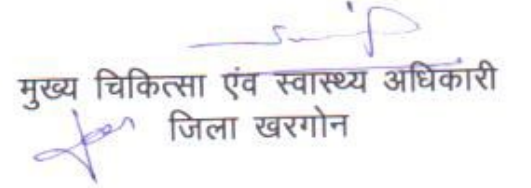 मुख्य चिकित्सा एंव स्वास्थ्य अधिकारी
जिला खरगोन